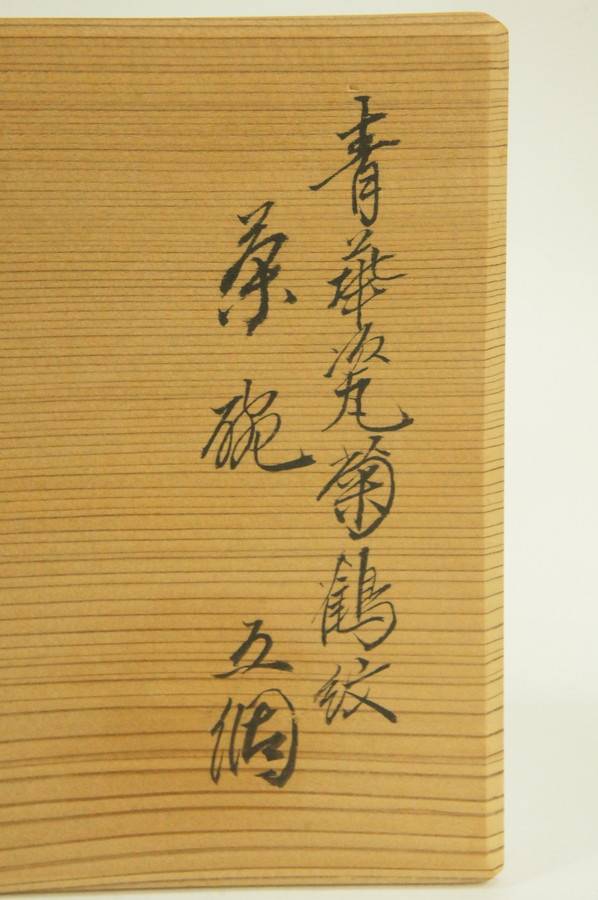 青華瓷菊鶴紋
茶碗 五個